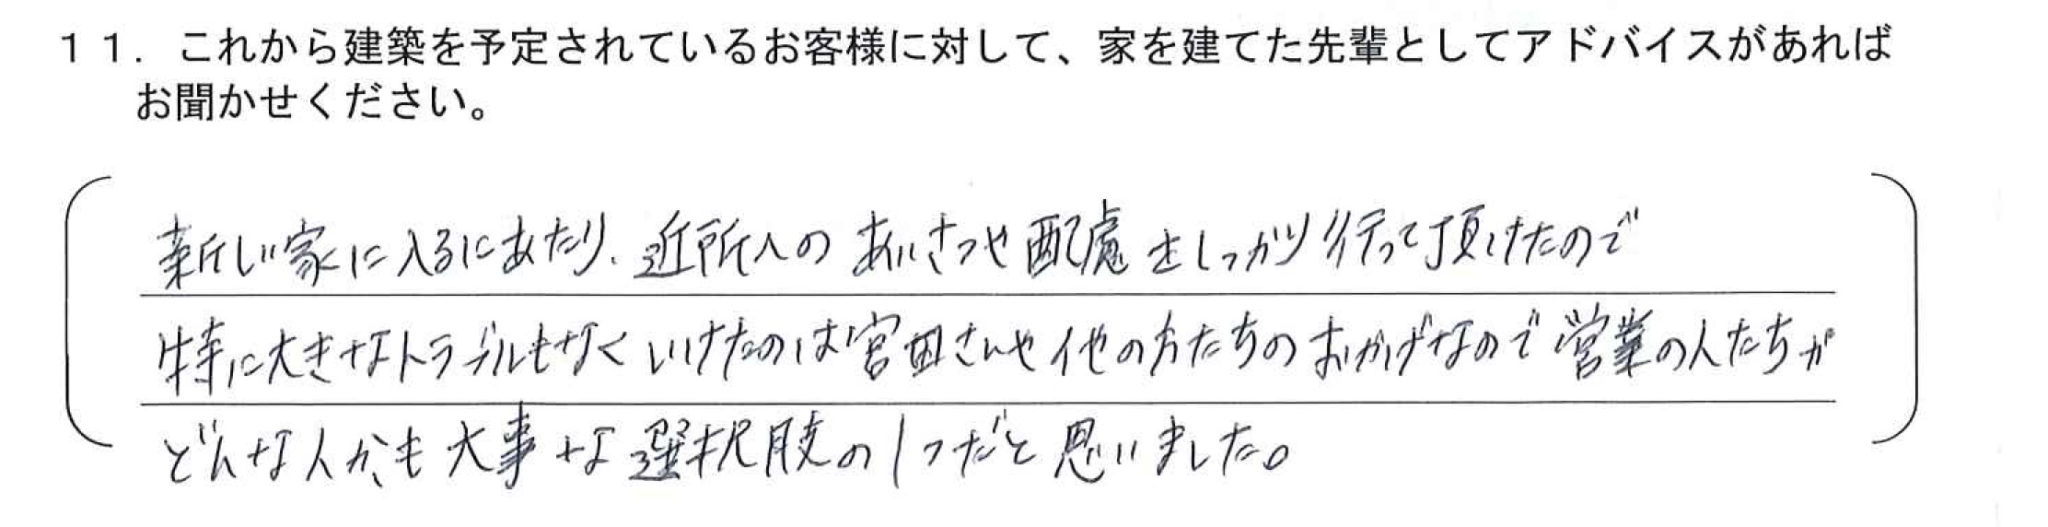 １１．これから建築を予定されているお客様に対して、家を建てた先輩としてアドバイスがあれば
お聞かせください。
新しい家に入るにあたり、近所へのあいさつや配慮をしっかり行って頂けたので
特に大きなトラブルもなくいけたのは宮田さんや他の方たちのおかげなので営業の人たちが
どんな人かも大事な選択肢の1つだと思いました。